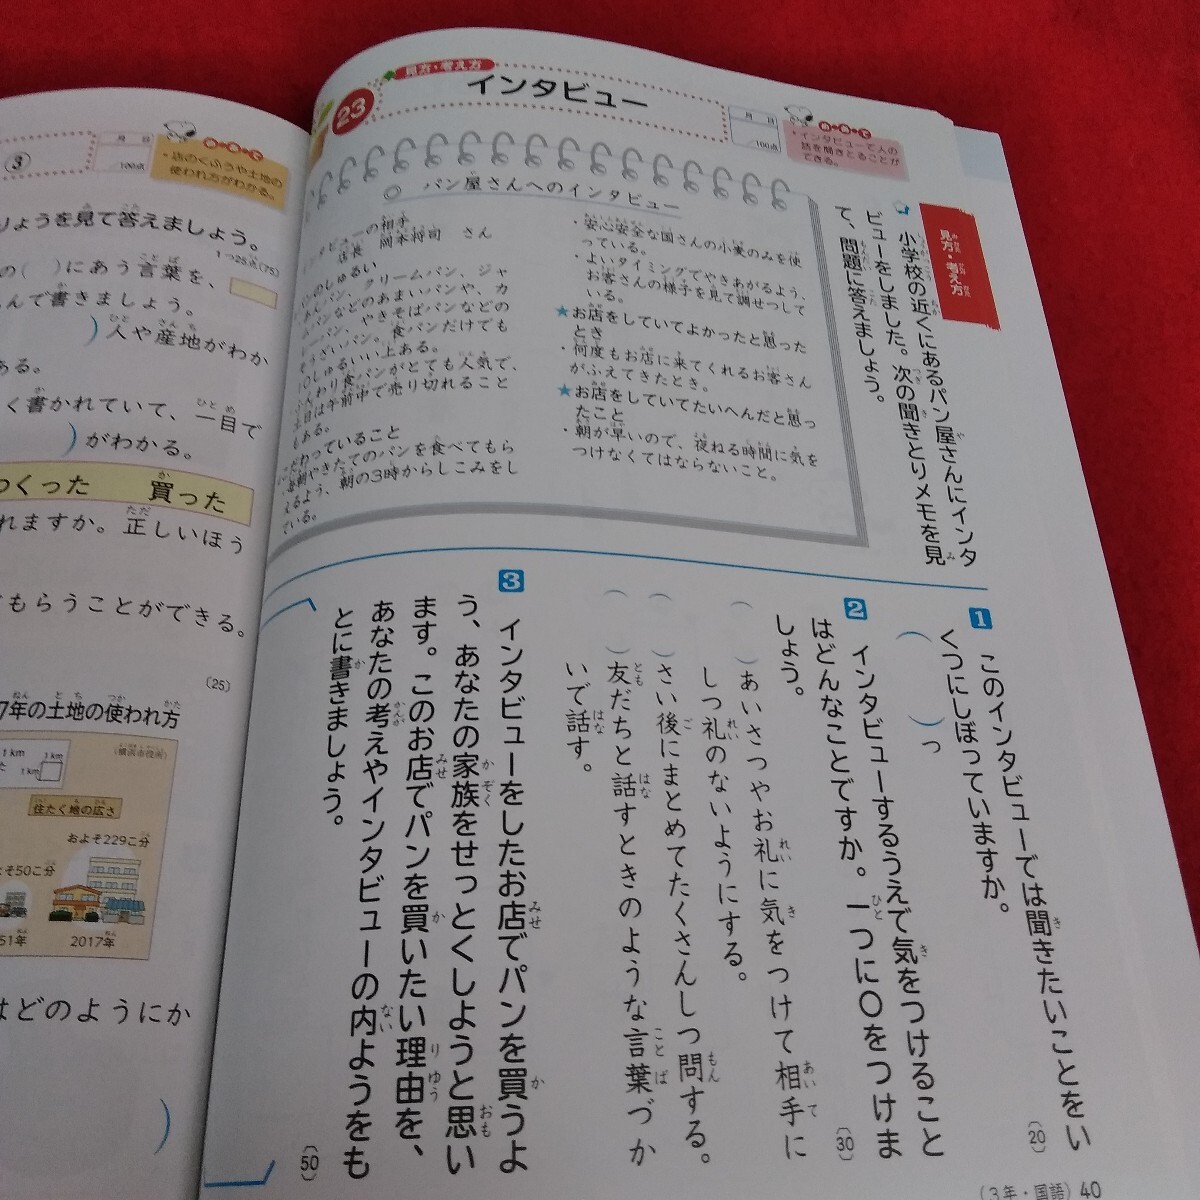 見方・考え方
23
インタビュー
月 日
100点
めあて
・インタビューで人の
話を聞きとることが
できる。
見方・考え方
小学校の近くにあるパン屋さんにインタ
ビューをしました。次の聞きとりメモを見
て、問題に答えましょう。
◎ パン屋さんへのインタビュー
タビューの相手
店長 岡本将司 さん
パンのしゅるい
あんパン、クリームパン、ジャ
ムパンなどのあまいパンや、カ
レーパン、やきそばパンなどの
そうざいパン。食パンだけでも
10しゅるい以上ある。
ふんわり食パンがとても人気で、
土日は午前中で売り切れること
もある。
こだわっていること
毎朝やきたてのパンを食べてもら
えるよう、朝の3時からしこみをし
ている。
・安心安全な国さんの小麦のみを使
っている。
・よいタイミングでやきあがるよう、
お客さんの様子を見て調せつして
いる。
★お店をしていてよかったと思った
とき
・何度もお店に来てくれるお客さん
がふえてきたとき。
★お店をしていてたいへんだと思っ
たこと
・朝が早いので、夜ねる時間に気を
つけなくてはならないこと。
1 このインタビューでは聞きたいことをい
くつにしぼっていますか。
(20)
( )つ
2 インタビューするうえで気をつけること
はどんなことですか。一つに○をつけま
しょう。
(30)
( )あいさつやお礼に気をつけて相手に
しつ礼のないようにする。
( )さい後にまとめてたくさんしつ問する。
( )友だちと話すときのような言葉づか
いで話す。
3 インタビューをしたお店でパンを買うよ
う、あなたの家族をせっとくしようと思い
ます。このお店でパンを買いたい理由を、
あなたの考えやインタビューの内ようをも
とに書きましょう。
(50)
(3年・国語) 40
③
月 日
100点
めあて
・店のくふうや土地の
使われ方がわかる。
りょうを見て答えましょう。
1つ25点(75)
の( )にあう言葉を、
んで書きましょう。
)人や産地がわか
ある。
く書かれていて、一目で
)がわかる。
つくった 買った
れますか。正しいほう
てもらうことができる。
(25)
7年の土地の使われ方
(横浜市役所)
1km
1km
1km
住たく地の広さ
およそ229こ分
よそ50こ分
51年
2017年
はどのようにか
)